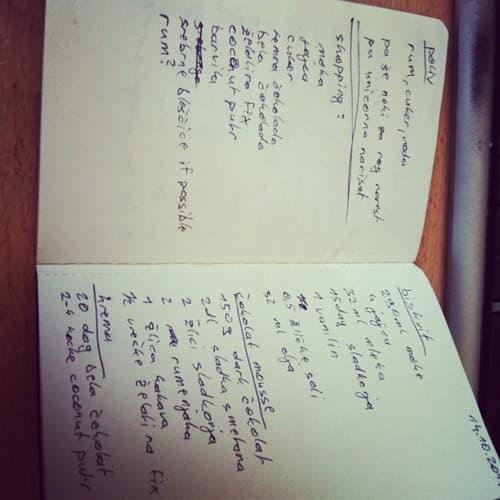 poliv
rum, cuker, voda
pa še neki za rog narest
pa unicorna narisat
shopping:
moka
jajca
cuker
temna čokolada
bela čokolada
želatina fix
coconut putr
barvila
srebrne bleščice if possible
rum?
14.10.20
biskuit
250ml moke
4 jajca
32 ml mleka
15 dag sladkorja
1 vanilin
0,5 žličke soli
32 ml olja
čokolat mousse
150g dark čokolat
2dl sladka smetana
2 žlici sladkorja
2 rumenjaka
1 žlica kakava
1/2 vrečke želatina fix
krema
20 dag bela čokolat
2-4 kocke coconut putr